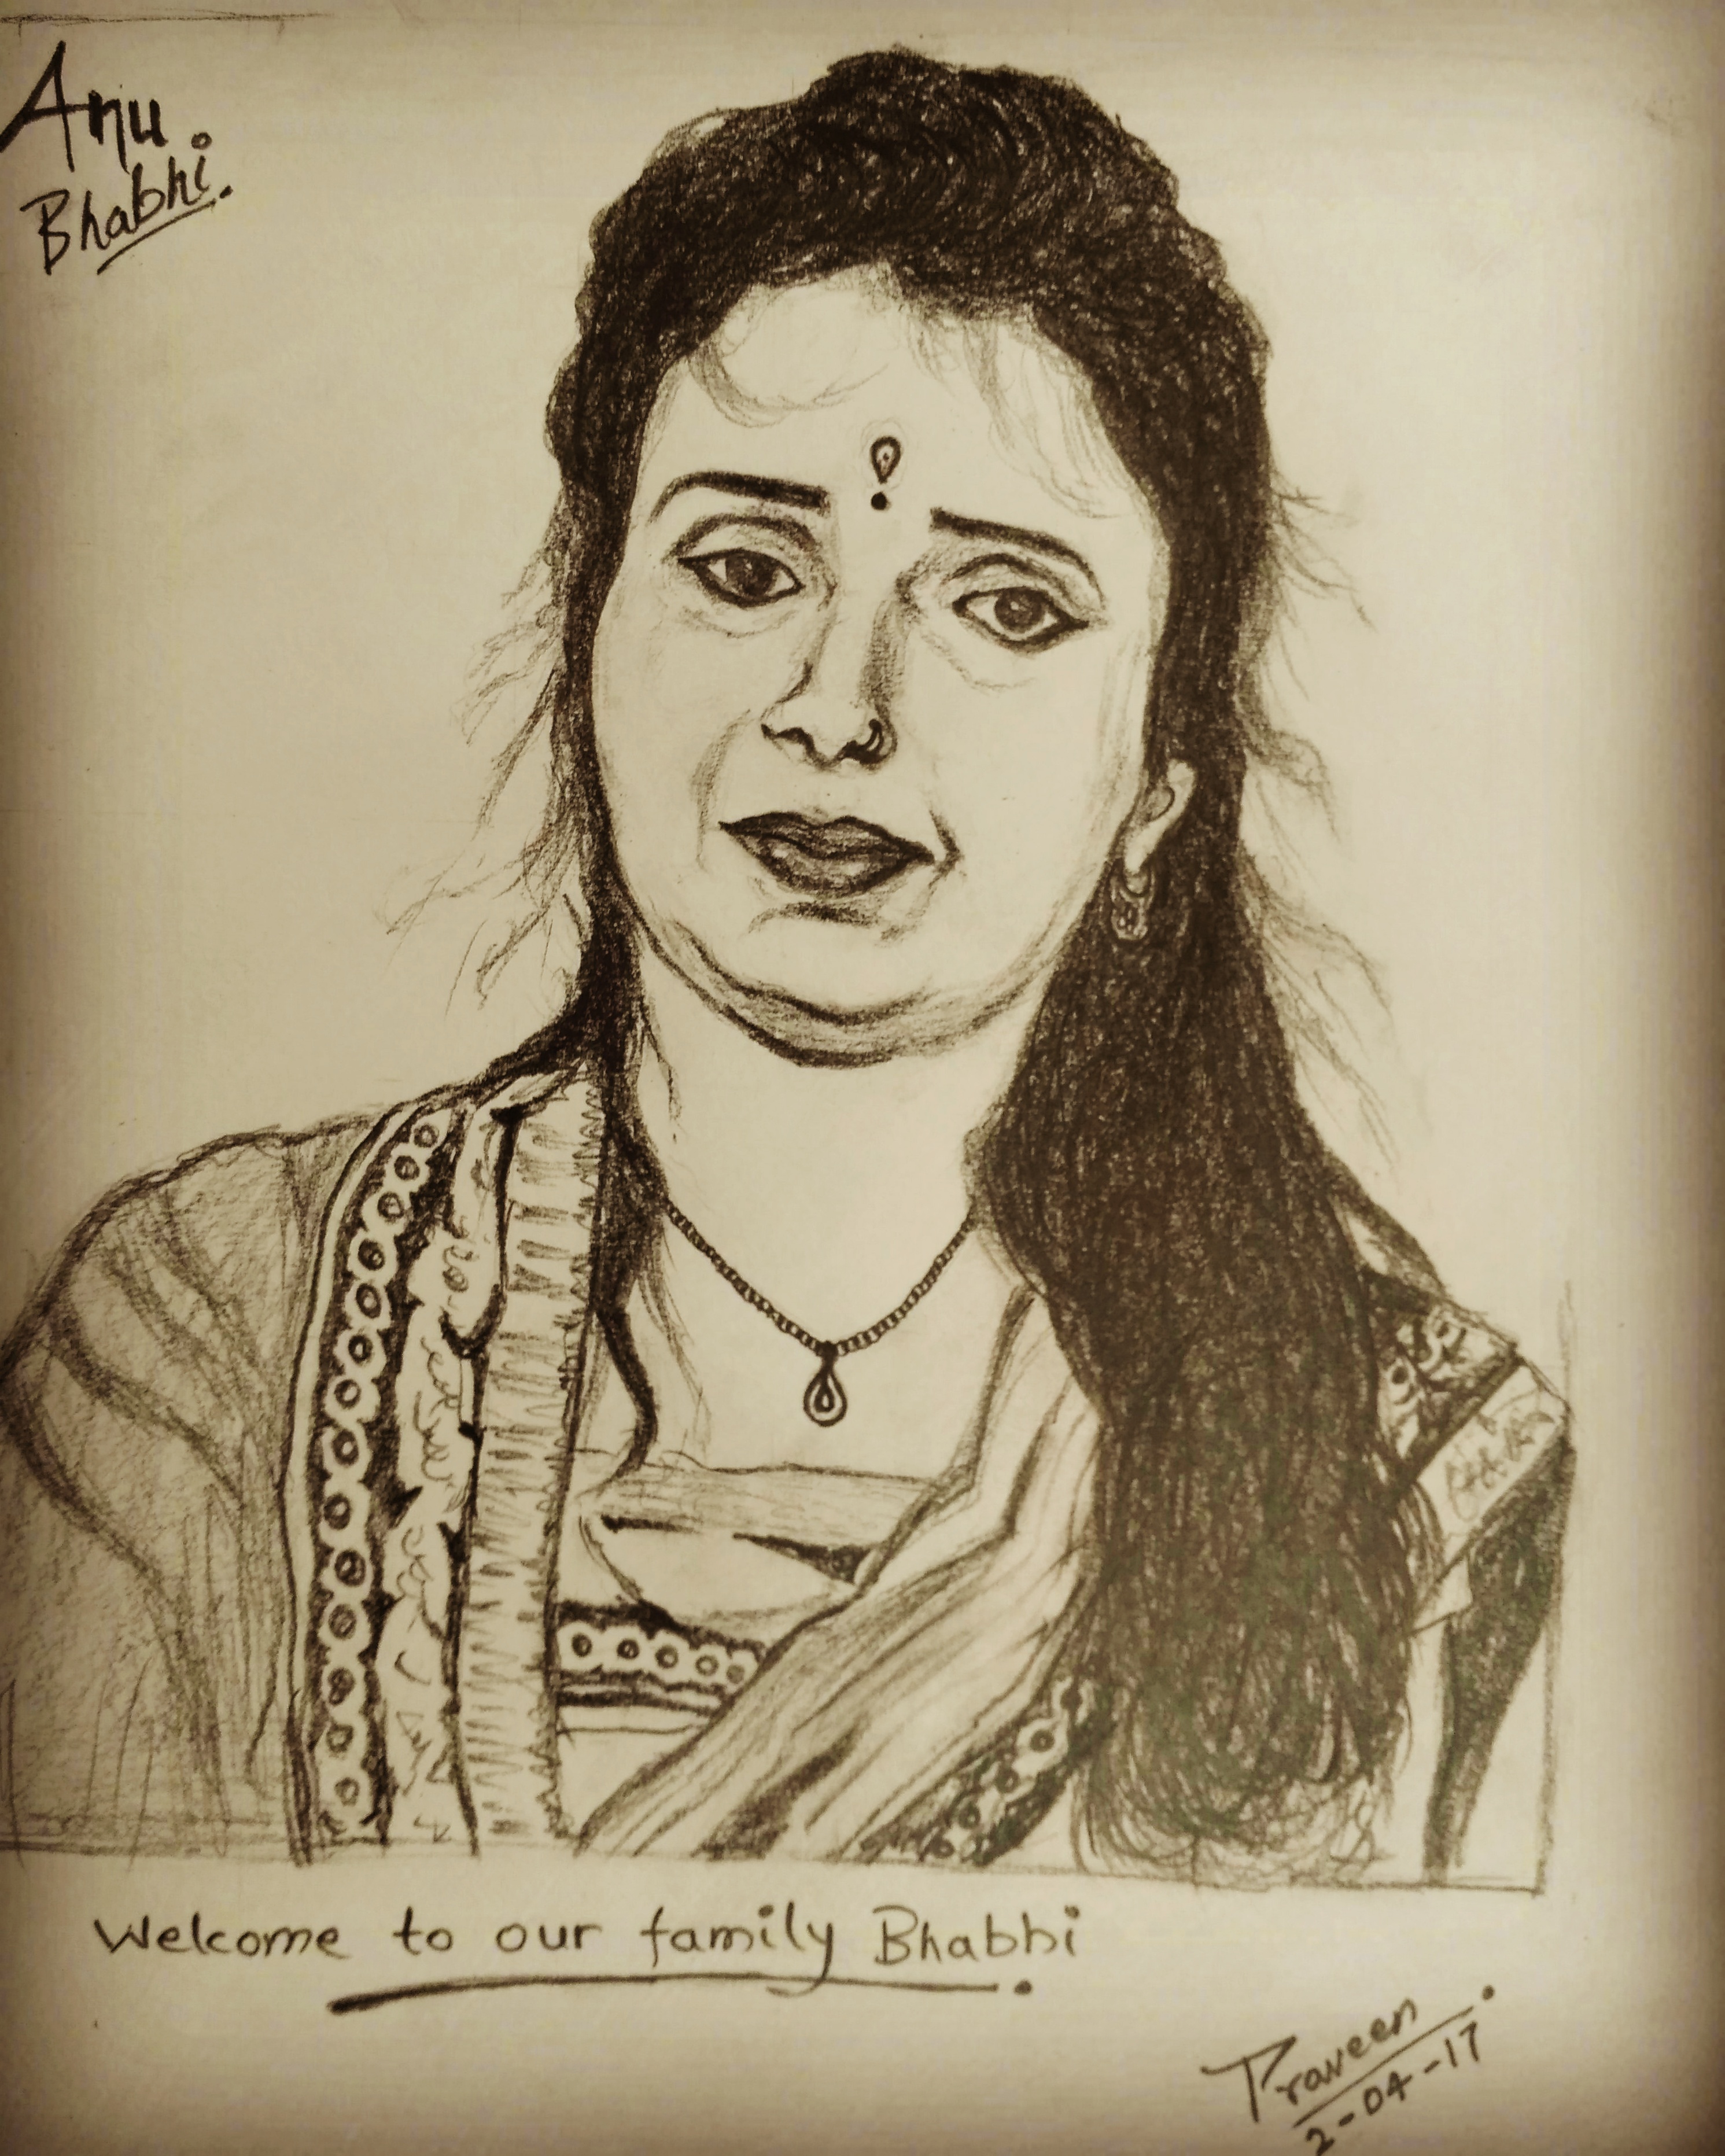 Anu.
Bhabhi.
Welcome to our family Bhabhi.
Praveen.
2-04-17